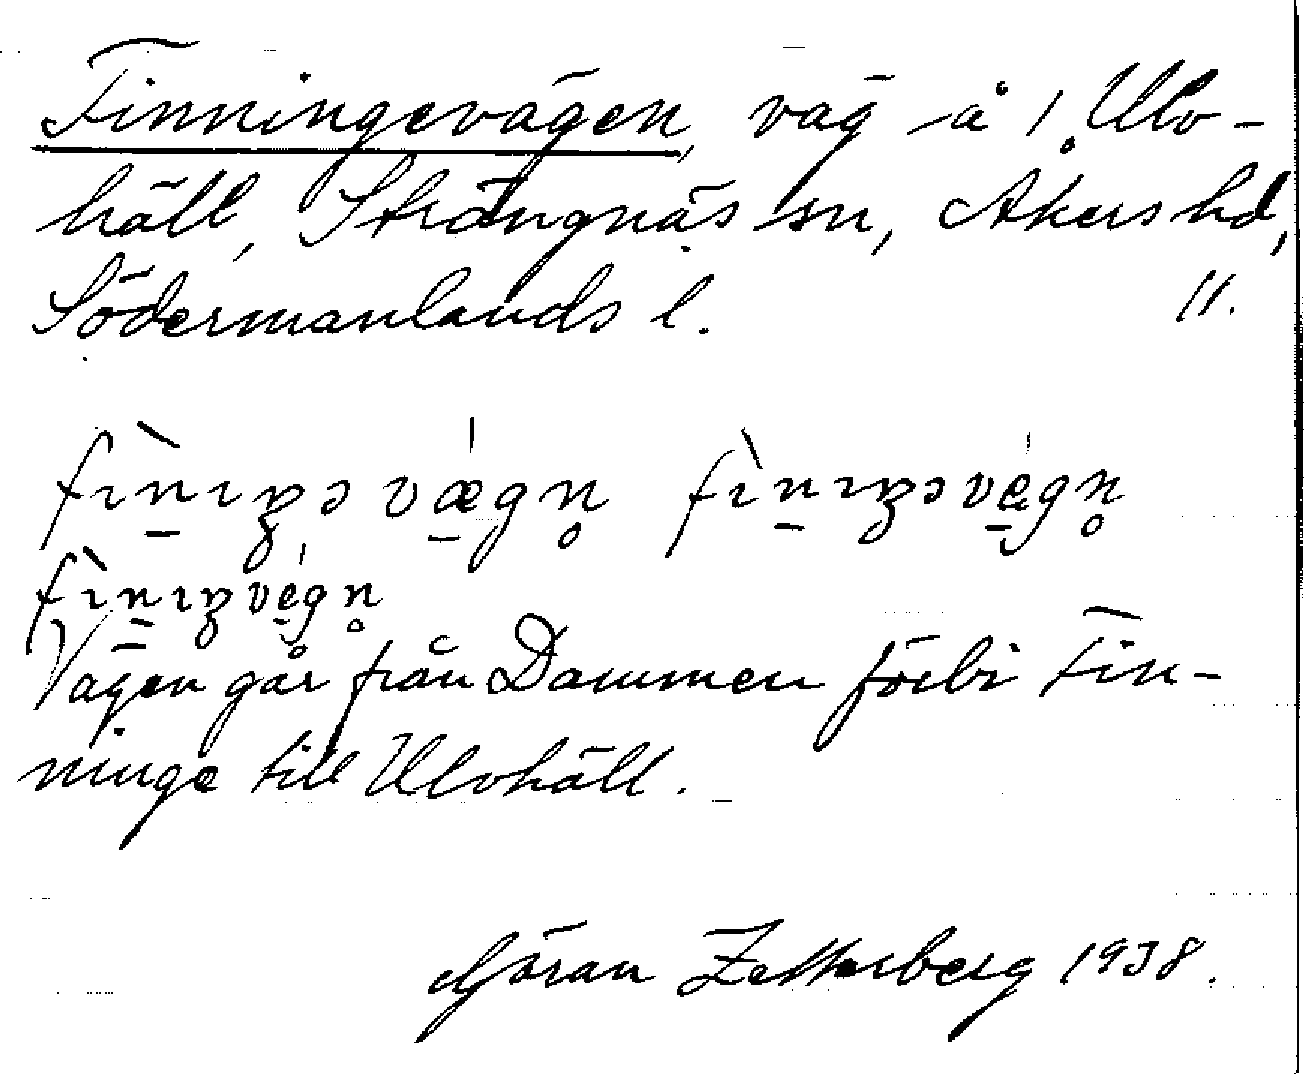 Finningevägen, väg å 1 Ulv-
häll, Strängnäs sn, Åkers hd,
Södermanlands l. 11.
Vägen går från Dammen förbi Fin-
ninge till Ulvhäll.
Göran Zetterberg 1938.